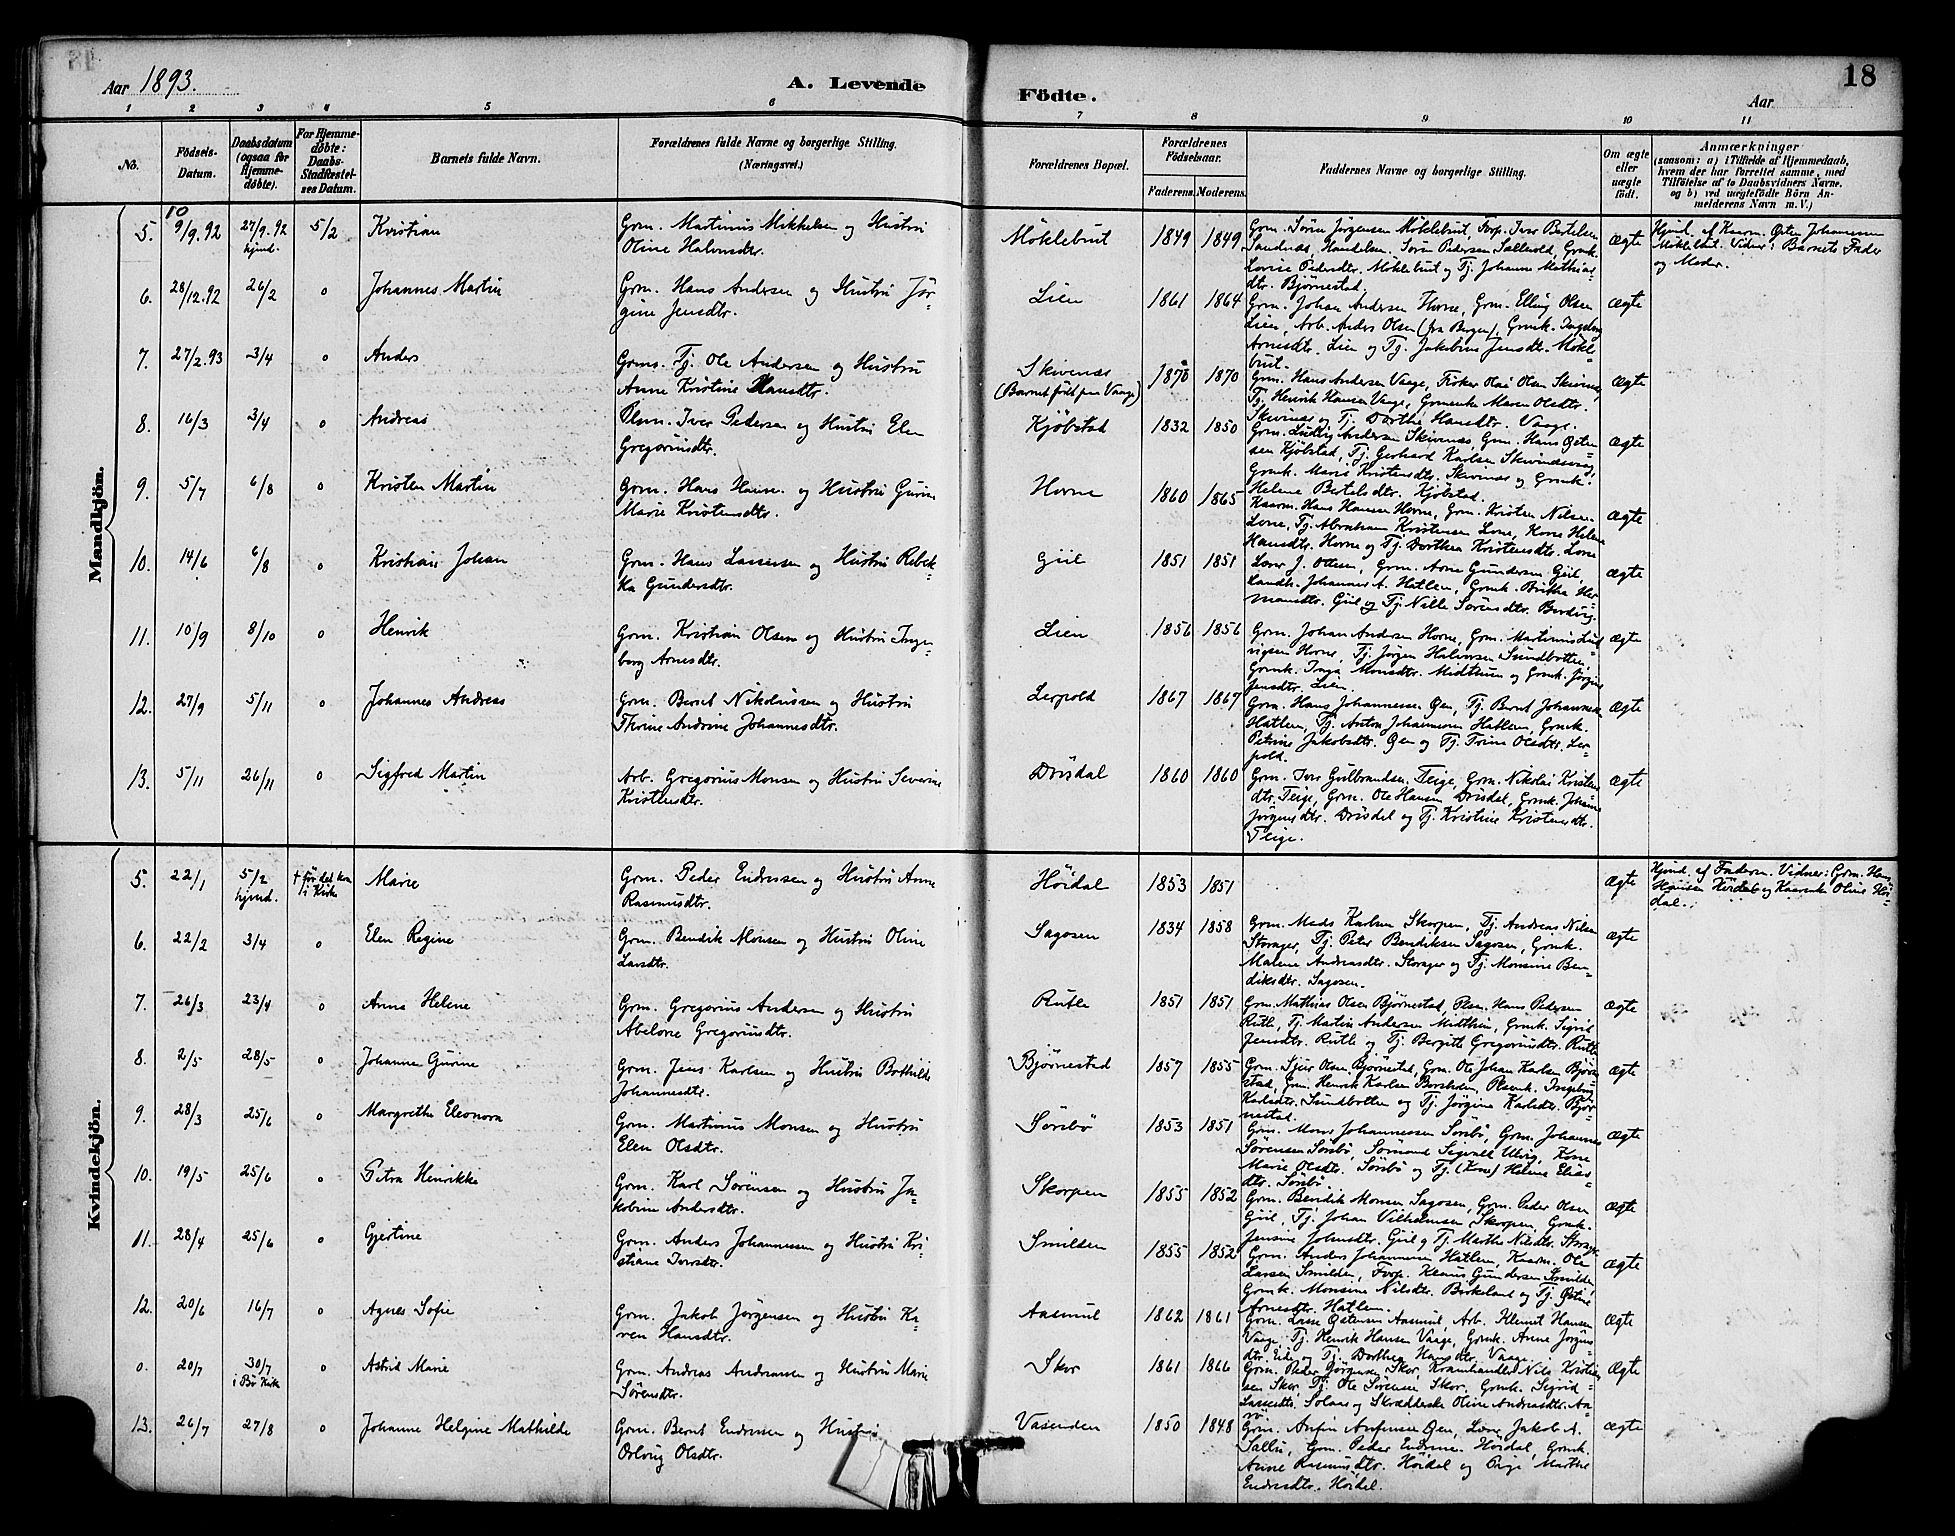 Aar 1893.
A. Levende
Födte.
Aar
18
1 2 3 4 5 6 7 8 9 10 11
No.
Födsels-
Datum.
Daabsdatum
(ogsaa for
Hjemme-
døbte).
For Hjemme-
døbte:
Daabs-
Stadfæstel-
ses Datum.
Barnets fulde Navn.
Forældrenes fulde Navne og borgerlige Stilling.
(Næringsvei.)
Forældrenes Bopæl.
Forældrenes
Födselsaar.
Faderens.
Moderens.
Faddernes Navne og borgerlige Stilling.
Om ægte
eller
uægte
födt.
Anmærkninger
(saasom: a) i Tilfælde af Hjemmedaab,
hvem der har forrettet samme, med
Tilföielse af to Daabsvidners Navne.
og b) ved uægtefödte Börn An-
melderens Navn m. V.)
Mandkjön.
5. 10 9/9.92 27/9.92 hjmd. 5/2 Kristian
Grm. Martinus Mikkelsen og Hustru
Oline Halvorsdtr.
Möklebut 1849 1849
Grm. Sörin Jörgensen Möklebut, Forp. Iver Bertelsen
Sandnæs, Handelsm. Sörin Pedersen Sallevold, Grmk.
Lovise Pedersdtr. Möklebut og Tj. Johanne Mathias
dtr. Bjørnestad.
Ægte
Hjmd. af Kaarm. Østen Johannesen
Möklebut. Vidner: Barnets Fader
og Moder.
6. 28/12.92 26/2 o Johannes Martin
Grm. Hans Andersen og Hustru Jör-
gine Jensdtr.
Lien 1861 1864
Grm. Johan Andersen Hovne, Grm. Elling Olsen
Lien, Arb. Anders Olsen (fra Bergen), Grmk. Ingeborg
Arnesdtr. Lien og Tj. Jakobine Jensdtr. Mökle-
but.
Ægte
7. 27/2.93 3/4 o Anders
Grms. Tj. Ole Andersen og Hustru
Anne Kristine Hansdtr.
Skivenæs
(Barnet født paa Vaage)
1870 1870
Grm. Hans Andersen Vaage, Fisker Olai Olsen Skivenæs,
Tj. Henrik Hansen Vaage, Grmenke Maren Olsdtr.
Skivenæs og Tj. Dorthe Hansdtr. Vaage.
Ægte
8. 16/3 3/4 o Andreas
Plsm. Iver Pedersen og Hustru Elen
Gregoriusdtr.
Kjöbstad 1832 1850
Grm. Ludvig Andersen Skivenæs, Grm. Hans Østen-
sen Kjöbstad, Tj. Gerhard Karlsen Skivenæs,
Grmk. Marie Kristensdtr. Skivenæs og Grmk.
Helene Bertelsdtr. Kjöbstad.
Ægte
9. 5/7 6/8 o Kristen Martin
Grm. Hans Hansen og Hustru Gurine
Marie Kristensdtr.
Hovne 1860 1865
Kaarm. Hans Hansen Hovne, Grm. Kristen Nilsen
Lone, Tj. Abraham Kristensen Lone, Kone Helene
Hansdtr. Hovne og Tj. Dorthea Kristensdtr. Lone
Ægte
10. 14/6 6/8 o Kristian Johan
Grm. Hans Lassesen og Hustru Rebek-
ka Gundersdtr.
Giil 1851 1851
Lærer J. Ottesen, Grm. Arne Gundersen Giil,
Landh. Johannes A. Hatlem, Grmk. Brithe Her-
mansdtr. Giil og Tj. Nille Sörensdtr. Bordvig.
Ægte
11. 10/9 8/10 o Henrik
Grm. Kristian Olsen og Hustru Inge-
borg Arnesdtr.
Lien 1856 1856
Grm. Johan Andersen Hovne, Grm. Martinus Lud-
vigsen Hovne, Tj. Jörgen Halvorsen Sundbotten,
Grmk. Inga Monsdtr. Midttuun og Grmk. Jörgine
Jensdtr. Lien.
Ægte
12. 27/9 5/11 o Johannes Andreas
Grm. Bernt Nikolaissen og Hustru
Thrine Andrine Johannesdtr.
Leopold 1867 1867
Grm. Hans Johannessen Øen, Tj. Bernt Johannessen
Hatlem, Tj. Anton Johannesen Hatlem, Grmk.
Petrine Jakobsdtr. Øen og Tj. Trine Olsdtr. Leo-
pold.
Ægte
13. 5/11 26/11 o Sigfred Martin
Arb. Gregorius Monsen og Hustru Severine
Kristensdtr.
Drisdal 1860 1860
Grm. Iver Gulbrandsen Teige, Grm. Nikolai Kristens
dtr. Teige, Grm. Ole Hansen Drisdal, Grmk. Johanne
Jörgensdtr. Drisdal og Tj. Kristine Kristensdtr.
Teige.
Ægte
Kvindekjön.
5. 22/1 5/2 hjmd. † før det kom i Kirke Marie
Grm. Peder Endresen og Hustru Anne
Rasmusdtr.
Höidal 1853 1851
Ægte
Hjmd. af Faderen. Vidner: Grm. Hans
Hansen Höidal og Kaarenke Oline Höi-
dal.
6. 22/2 3/4 o Elen Regine
Grm. Bendik Monsen og Hustru Oline
Larsdtr.
Sagosen 1834 1858
Grm. Mads Karlsen Skorpen, Tj. Andreas Nilsen
Storager, Tj. Peter Bendiksen Sagosen, Grmk.
Malene Andreasdtr. Storager og Tj. Monsine Ben-
diksdtr. Sagosen.
Ægte
7. 26/3 23/4 o Anna Helene
Grm. Gregorius Andersen og Hustru
Abelone Gregoriusdtr.
Rutle 1851 1851
Grm. Mathias Olsen Bjørnestad, Plsm. Hans Pedersen
Rutle, Tj. Martin Andersen Midttun, Grmk. Sigrid
Jensdtr. Rutle og Tj. Bergitte Gregoriusdtr. Rutle
Ægte
8. 2/5 28/5 o Johanne Gurine
Grm. Jens Karlsen og Hustru Bothilde
Johannesdtr.
Bjørnestad 1857 1855
Grm. Sjur Olsen Bjørnestad, Grm. Ole Johan Karlsen Bjørne-
stad, Grm. Henrik Karlsen Borsholm, Plsenk. Ingeborg
Karlsdtr. Sundbotten og Tj. Jörgine Karlsdtr. Bjør-
nestad.
Ægte
9. 28/3 25/6 o Margrethe Eleonora
Grm. Martinus Monsen og Hustru
Elen Olsdtr.
Sörsbö 1853 1851
Grm. Mons Johannessen Sörsbö, Grm. Johannes
Sörensen Sörsbö, Sömand Sigvald Ulvig, Kone
Marie Olsdtr. Sörsbö og Tj. (Kone) Helene Elias
dtr. Sörsbö.
Ægte
10. 19/5 25/6 o Petra Henrikke
Grm. Karl Sörensen og Hustru Ja-
kobine Andersdtr.
Skorpen 1855 1852
Grm. Bendik Monsen Sagosen, Grm. Peder Olsen
Giil, Tj. Johan Vilhelmsen Skorpen, Grmk.
Jensine Johnsdtr. Giil og Tj. Marthe Nilsdtr. Storager
Ægte
11. 28/4 25/6 o Gjertine
Grm. Anders Johannessen og Hustru Kri-
stiane Iversdtr.
Smilden 1855 1852
Grm. Anders Johannesen Hatlem, Kaarm. Ole
Larsen Smilden, Forp. Klaus Gundersen Smilden,
Grmk. Monsine Nilsdtr. Birkeland og Tj. Østine
Arnesdtr. Hatlem.
Ægte
12. 20/6 16/7 o Agnes Sofie
Grm. Jakob Jørgensen og Hustru Ka-
ren Hansdtr.
Aasmul 1862 1861
Grm. Lasse Østensen Aasmul, Arb. Klemet Hansen
Vaage, Tj. Henrik Hansen Vaage, Grmk. Anne Jörgens
dtr. Eide og Tj. Dorthea Hansdtr. Vaage.
Ægte
o. 20/7 30/7 i Bö Kirke o Astrid Marie
Grm. Andreas Andreassen og Hustru Marie
Sörensdtr.
Skor 1861 1866
Grm. Peder Jörgensen Skor, Kramhandler Nils Kristian
sen Skor, Tj. Ole Sörensen Skor, Grmk. Sigrid
Lassesdtr. Solaas og Skrædderske Oline Andreasdtr. Aa-
rö
Ægte
13. 26/7 27/8 o Johanne Helgine Mathilde
Grm. Bernt Endresen og Hustru
Orloug Olsdtr.
Vasenden 1850 1848
Grm. Anfin Anfinsen Øen, Lærer Jakob A.
Salbu, Grm. Peder Endresen Höidal, Grmk.
Anne Rasmusdtr. Höidal og Pige Marthe
Endresdtr. Höidal.
Ægte